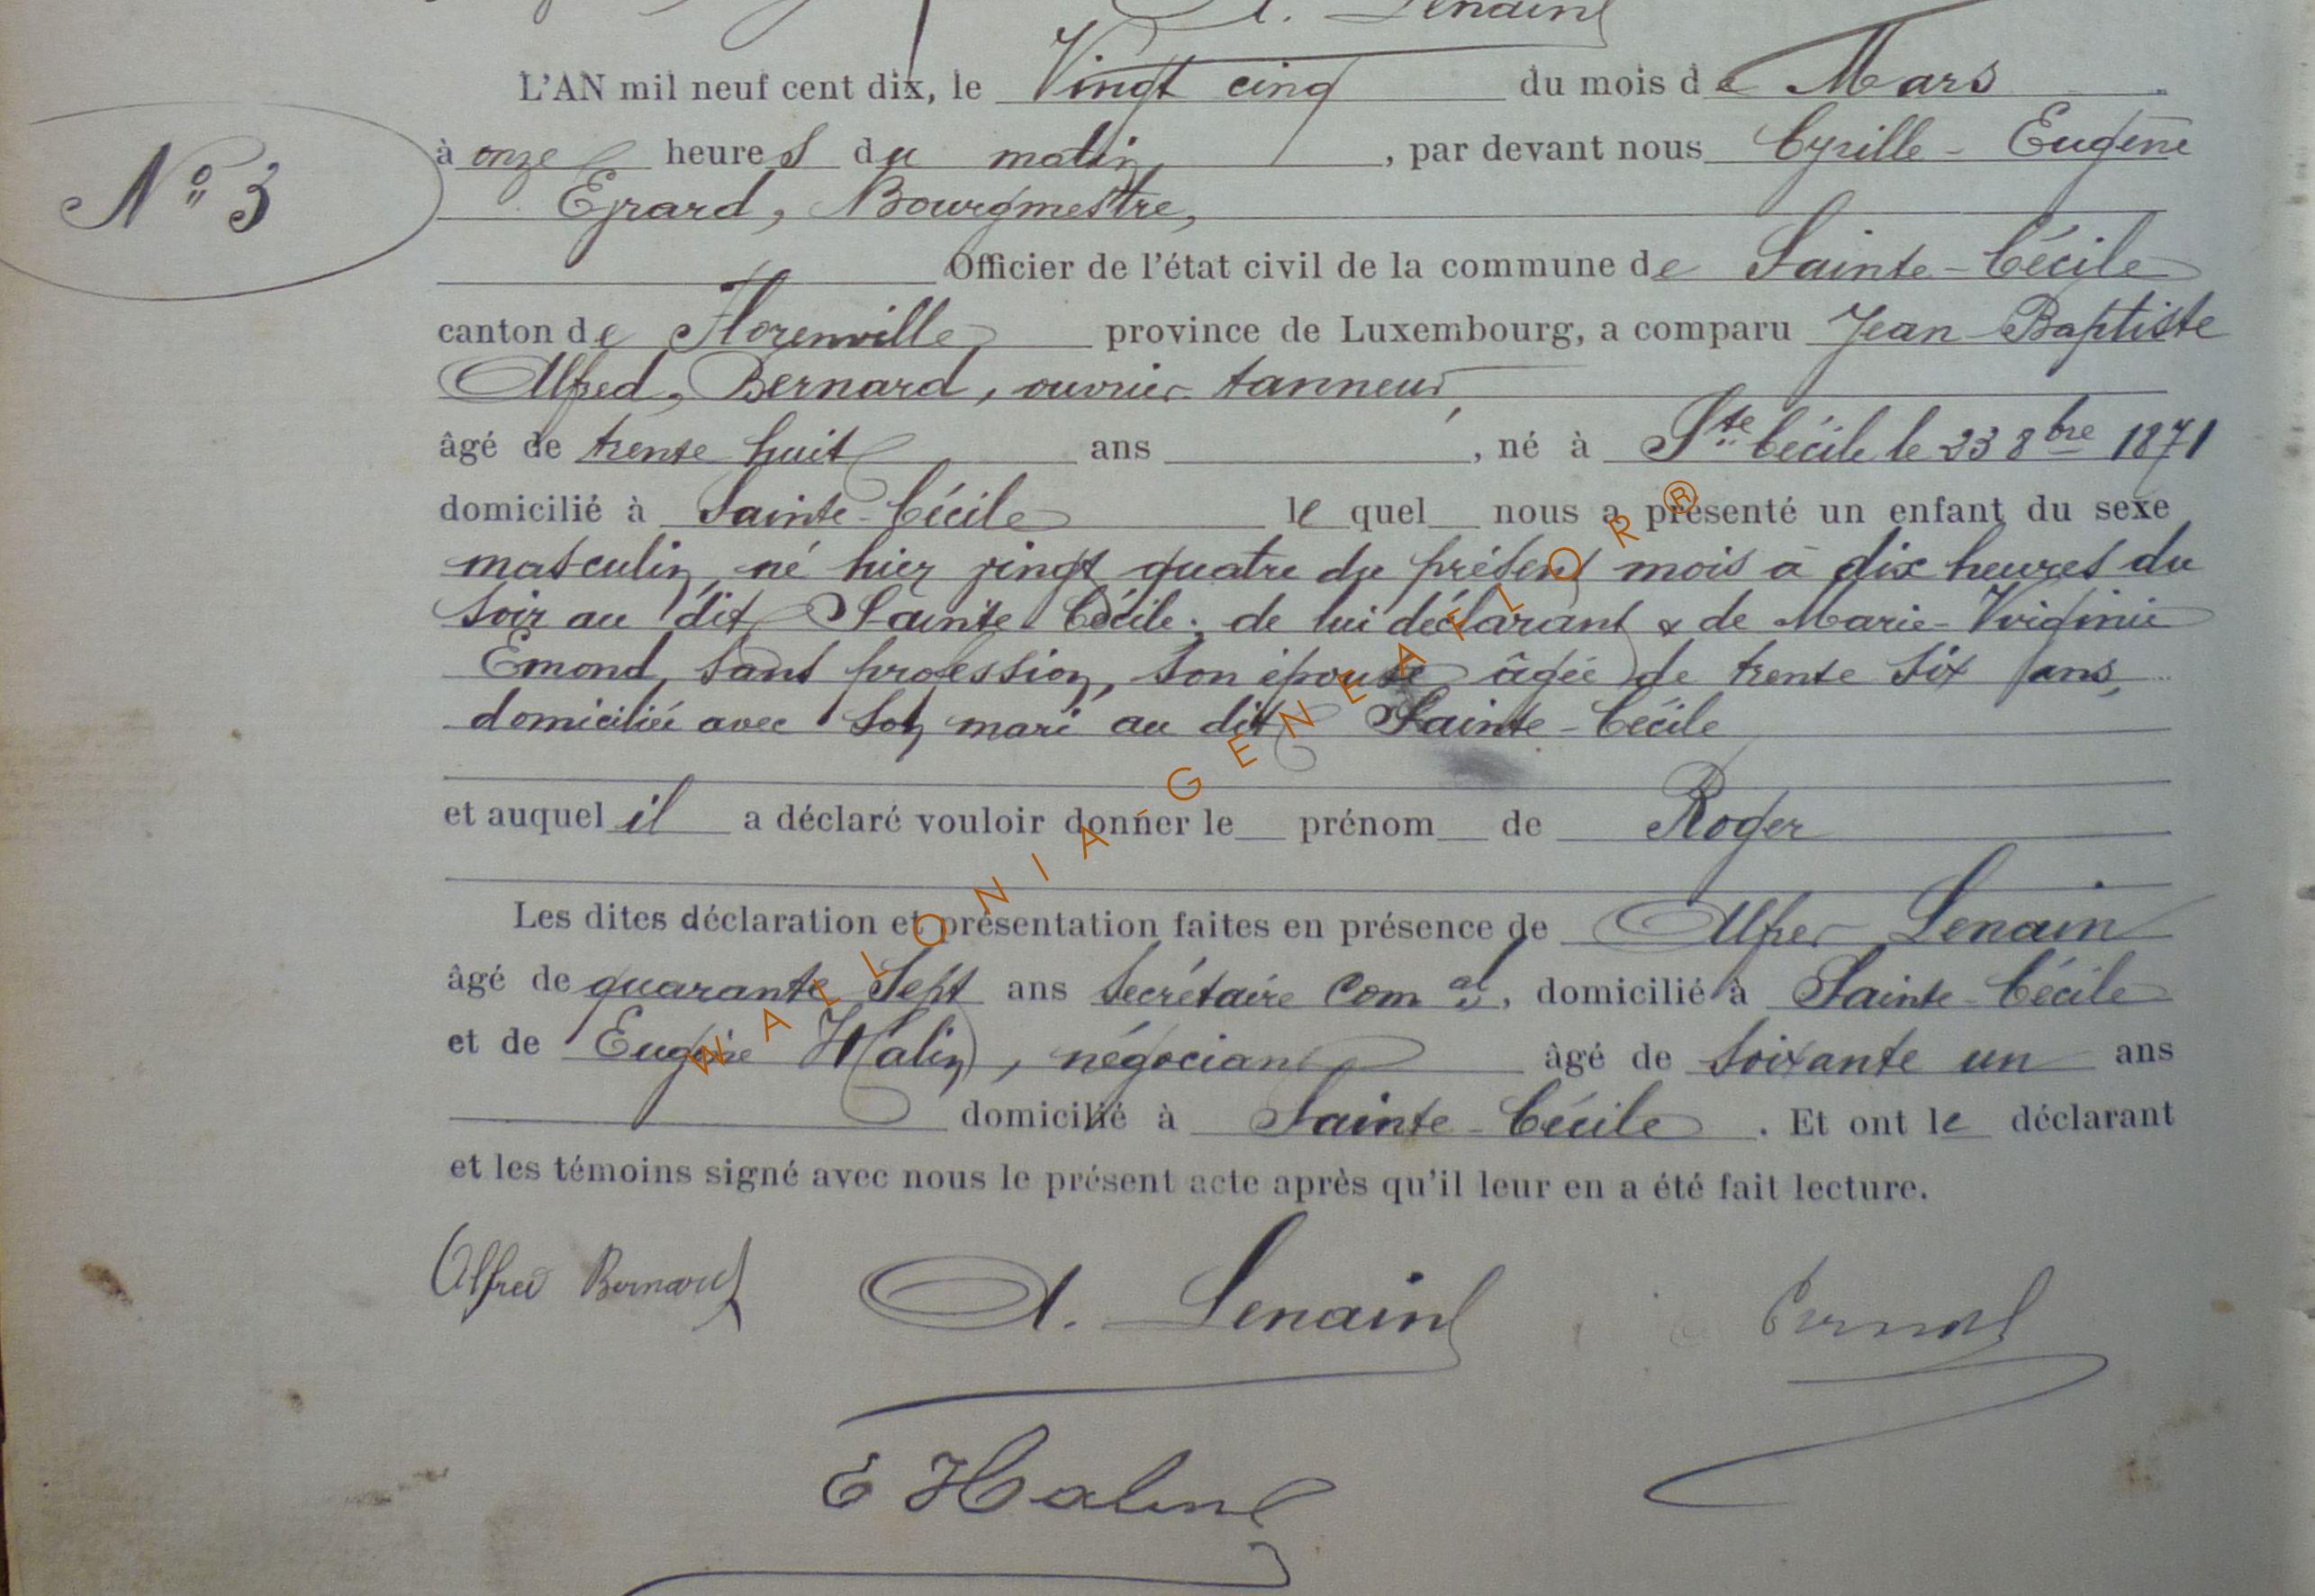 A. Lenain
L'AN mil neuf cent dix, le Vingt cinq du mois de Mars
N° 3
à onze heures du matin, par devant nous Cyrille-Eugène
Bourgmestre,
Officier de l'état civil de la commune de Sainte-Cécile
canton de Florenville province de Luxembourg, a comparu Jean-Baptiste
Alfred, Bernard, ouvrier tanneur,
âgé de trente huit ans, né à Ste Cécile le 23 8bre 1871
domicilié à Sainte-Cécile le quel nous a présenté un enfant du sexe
masculin, né hier vingt quatre du présent mois à dix heures du
soir au dit Sainte Cécile, de lui déclarant & de Marie-Virginie
Emond, sans profession, son épouse âgée de trente six ans,
domiciliée avec son mari au dit Sainte-Cécile
et auquel il a déclaré vouloir donner le prénom de Roger
Les dites déclaration et présentation faites en présence de Alfred Lenain
âgé de quarante sept ans secrétaire Com al, domicilié à Sainte-Cécile
et de Eugène Halin, négociant âgé de soixante un ans
domicilié à Sainte-Cécile. Et ont le déclarant
et les témoins signé avec nous le présent acte après qu'il leur en a été fait lecture.
Alfred Bernard A. Lenain
E Halin
WALLONIA-GENEAFLOR®